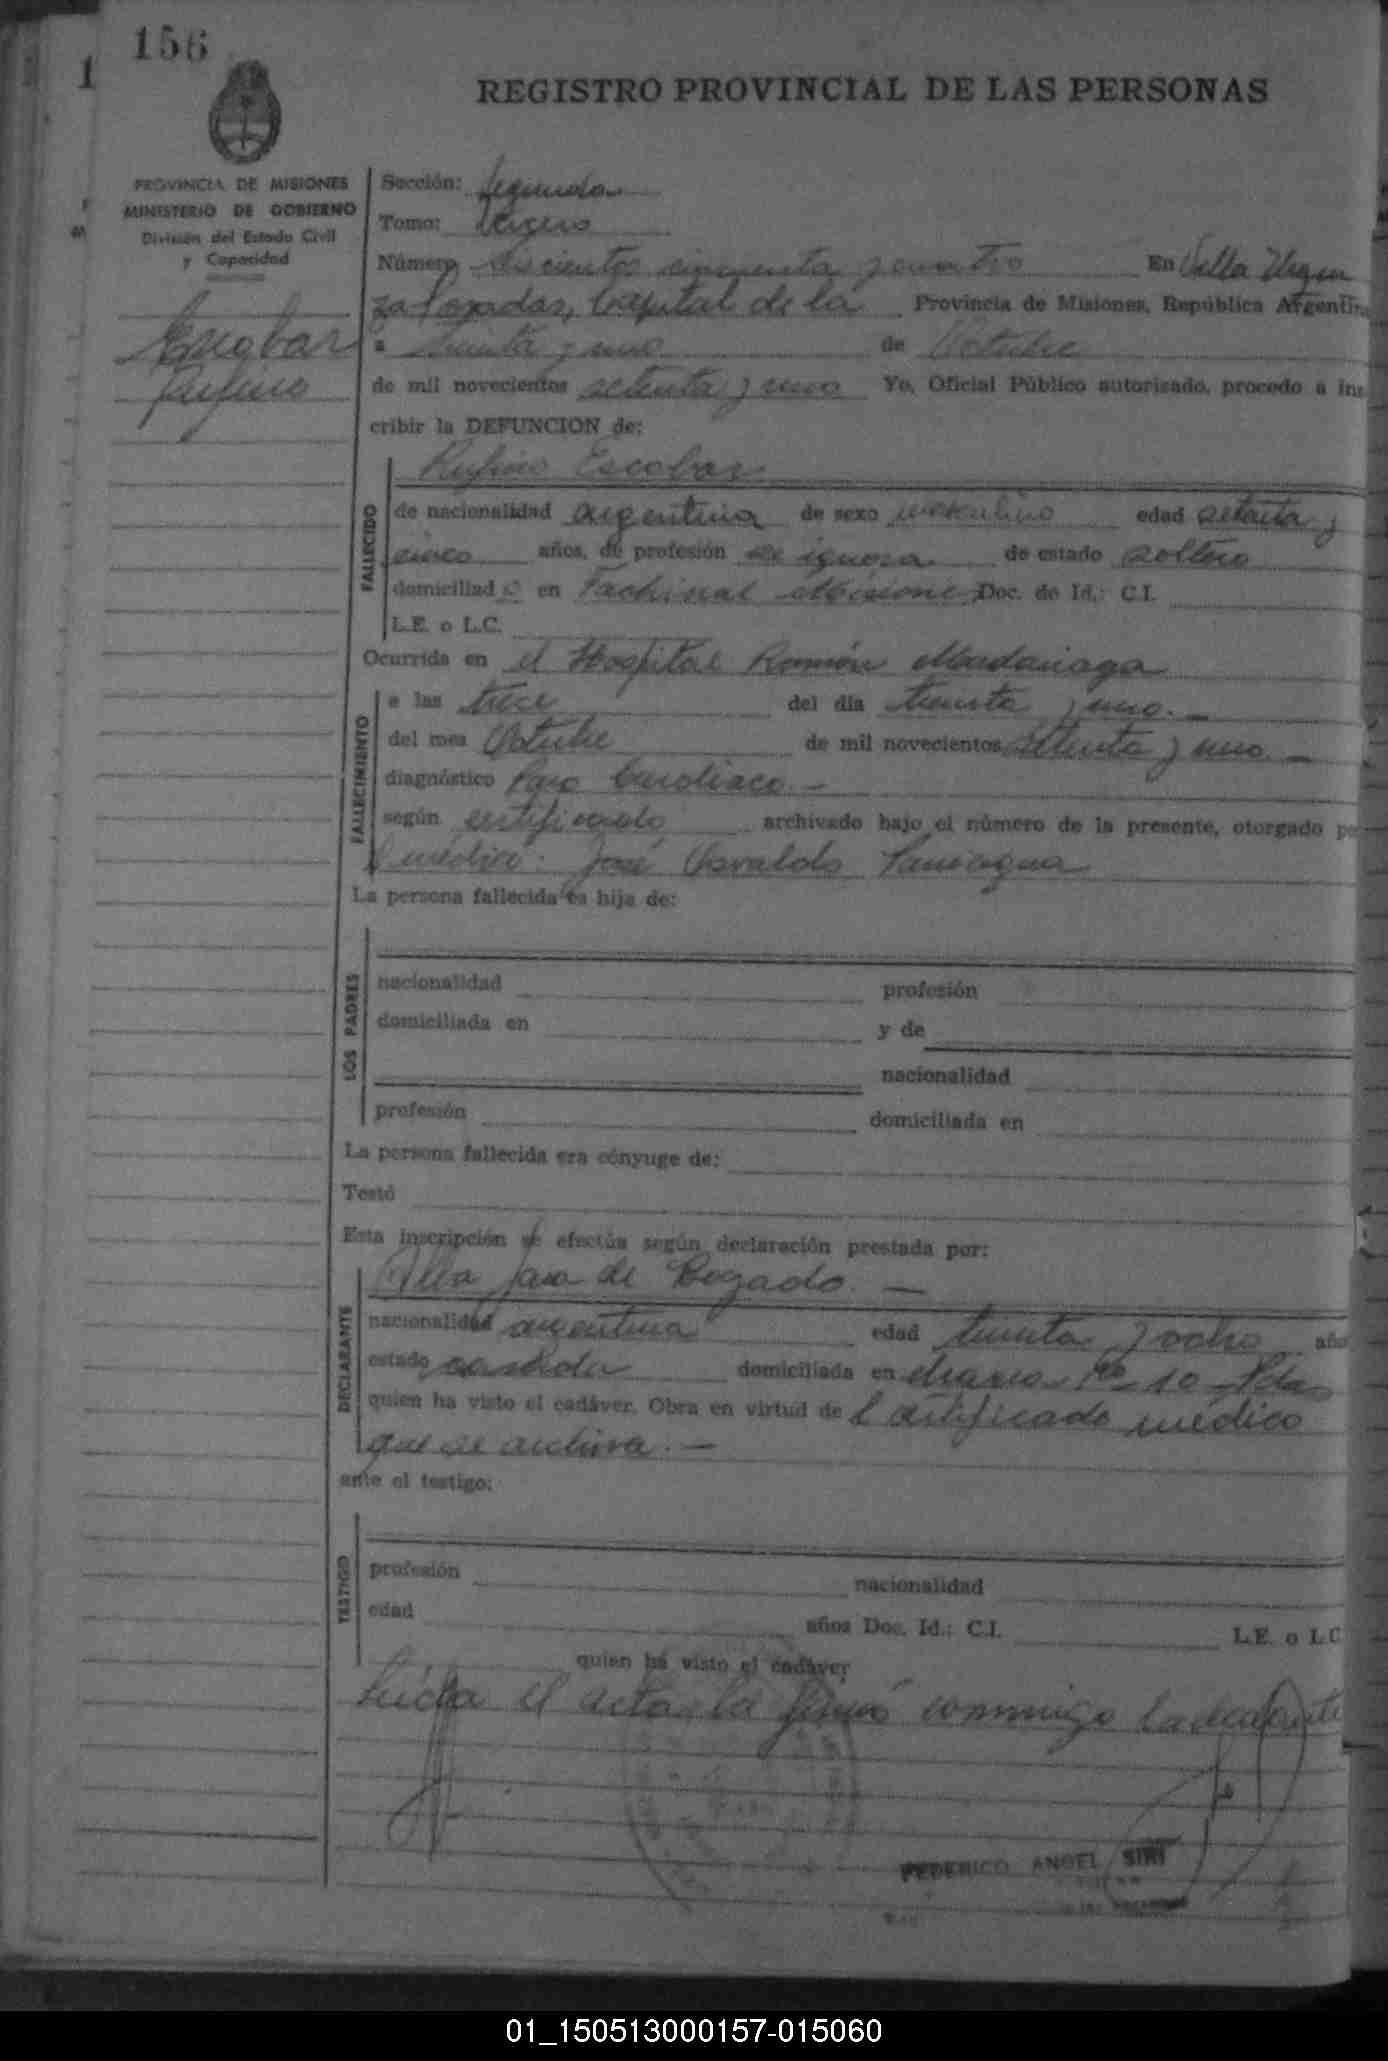 156
1
REGISTRO PROVINCIAL DE LAS PERSONAS
PROVINCIA DE MISIONES
MINISTERIO DE GOBIERNO
División del Estado Civil
y Capacidad
Escobar
Rufino
Sección: Segunda
Tomo: tercero
Número seiscientos cincuenta y cuatro En Villa Urqui
za Posadas, Capital de la Provincia de Misiones, República Argentina
a treinta y uno de Octubre
de mil novecientos setenta y uno Yo, Oficial Público autorizado, procedo a ins
cribir la DEFUNCION de:
Rufino Escobar
FALLECIDO
de nacionalidad argentina de sexo masculino edad setenta y
cinco años, de profesión se ignora de estado soltero
domiciliado en Fachinal Misiones Doc. de Id.: C.I.
L.E. o L.C.
Ocurrida en el Hospital Ramón Madariaga
FALLECIMIENTO
a las trece del día treinta y uno.—
del mes Octubre de mil novecientos setenta y uno.—
diagnóstico Paro Cardiaco.—
según certificado archivado bajo el número de la presente, otorgado po
médico: José Osvaldo
La persona fallecida es hija de:
LOS PADRES
nacionalidad profesión
domiciliada en y de
nacionalidad
profesión domiciliada en
La persona fallecida era cónyuge de:
Testó
Esta inscripción se efectúa según declaración prestada por:
de Bogado.—
DECLARANTE
nacionalidad argentina edad treinta y ocho año
estado casada domiciliada en No 10 Pdas
quien ha visto el cadáver. Obra en virtud de l certificado médico
que se archiva.—
ante el testigo:
TESTIGO
profesión nacionalidad
edad años Doc. Id.: C.I. L.E. o L.C
quien ha visto el cadáver
Leída el acta, la firmó conmigo la declarante
FEDERICO ANGEL SIRI
01_150513000157-015060